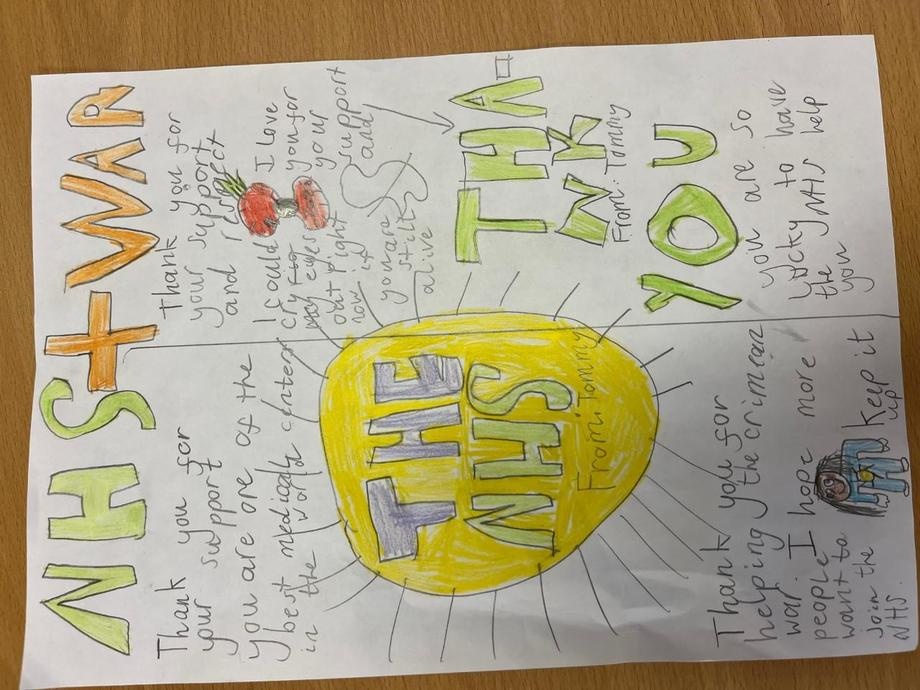 NHS + WAR
Thank you for
your support
You are one of the
best medical centers
in the world
Thank you for
your support
and respect
I could
cry
eyes
out right
now if
you are
still
alive
I love
you for
your
support
and
THE
NHS
From: Tommy
THA-
NK
From: Tommy
YOU
Thank you for
helping the crimean
war. I hope more
people
want to
join the
NHS.
Keep it
up
you are so
lucky to have
the NHS help
you